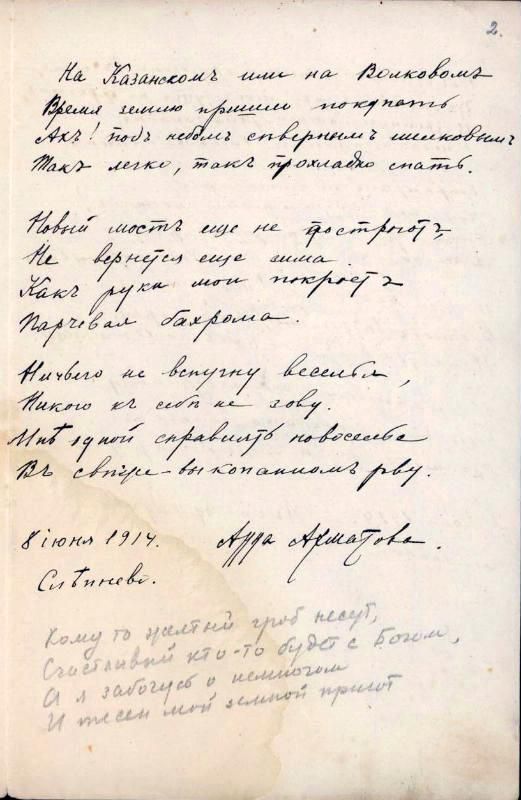 2.
На Казанскомъ или на Волковомъ
Время землю пришло покупать
Ахъ! подъ небомъ сѣвернымъ шелковымъ
Такъ легко, такъ прохладно спать.
Новый мостъ еще не достроютъ,
Не вернется еще зима
Какъ руки мои покроетъ
Парчевая бахрома.
Ничьего не вспугну веселья,
Никого къ себѣ не зову.
Мнѣ одной справлять новоселье
Въ свѣже-выкопанномъ рву.
8 іюня 1914. Анна Ахматова.
Слѣпнево.
Кому то желтый гроб несут,
Счастливый кто-то будет с Богом,
А я забочусь о немногом
И тесен мой земной приют